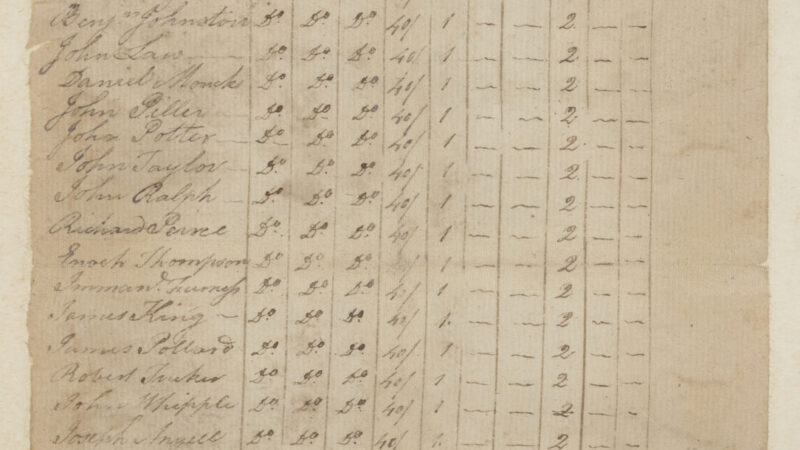 Benj.n Johnston Do. Do. Do. 40/ 1 — — 2 — —
John Law — Do. Do. Do. 40/ 1 — — 2 — —
Daniel Monck Do. Do. Do. 40/ 1 — — 2 — —
John Piller Do. Do. Do. 40/ 1 — — 2 — —
John Potter — Do. Do. Do. 40/ 1 — — 2 — —
John Taylor — Do. Do. Do. 40/ 1 — — 2 — —
John Ralph — Do. Do. Do. 40/ 1 — — 2 — —
Richard Peirce Do. Do. Do. 40/ 1 — — 2 — —
Enoch Thompson Do. Do. Do. 40/ 1 — — 2 — —
Do. Do. Do. 40/ 1 — — 2 — —
James King — Do. Do. Do. 40/ 1 — — 2 — —
James Pollard Do. Do. Do. 40/ 1 — — 2 — —
Robert Tucker Do. Do. Do. 40/ 1 — — 2 — —
John Whipple Do. Do. Do. 40/ 1 — — 2 — —
Joseph Angell Do. Do. Do. 40/ 1 — — 2 — —